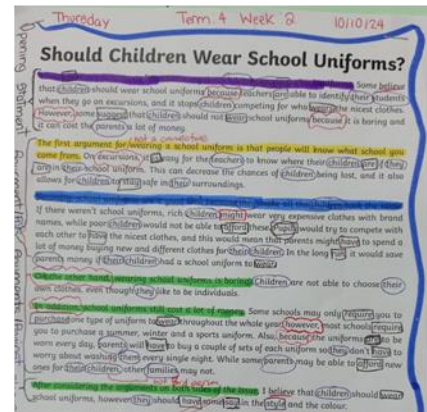 Thursday Term 4 Week 2 10/10/24
Should Children Wear School Uniforms?
Some believe
that children should wear school uniforms because teachers are able to identify their students
when they go on excursions, and it stops children competing for who wears the nicest clothes.
However, some suggest that children should not wear school uniforms because it is boring and
it can cost the parents a lot of money.
not a
The first argument for wearing a school uniform is that people will know what school you
come from. On excursions, it is easy for the teachers to know where their children are if they
are in their school uniform. This can decrease the chances of children being lost, and it also
allows for children to stay safe in their surroundings.
If there weren't school uniforms, rich children might wear very expensive clothes with brand
names, while poor children would not be able to afford these. Pupils would try to compete with
each other to have the nicest clothes, and this would mean that parents might have to spend a
lot of money buying new and different clothes for their children. In the long run, it would save
parents money if their children had a school uniform to wear.
On the other hand, wearing school uniforms is boring. Children are not able to choose their
own clothes, even though they like to be individuals.
In addition, school uniforms still cost a lot of money. Some schools may only require you to
purchase one type of uniform to wear throughout the whole year, however, most schools require
you to purchase a summer, a winter and a sports uniform. Also, because the uniforms are to be
worn every day, parents will have to buy a couple of sets of each uniform so they don't have to
worry about washing them every single night. While some parents may be able to afford new
ones for their children, other families may not.
After considering the arguments on both sides of the issue, I believe that children should wear
school uniforms, however they should have some say in the style and the colour.
Opening Statement
Arguments